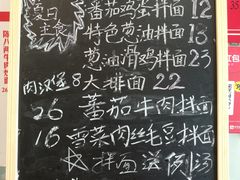 夏日
主食
番茄鸡蛋拌面 12
特色葱油拌面 13
葱油滑鸡拌面 23
肉汉堡 8 大排面 22
26 番茄牛肉拌面
16 雪菜肉丝毛豆拌面
拌面送例汤